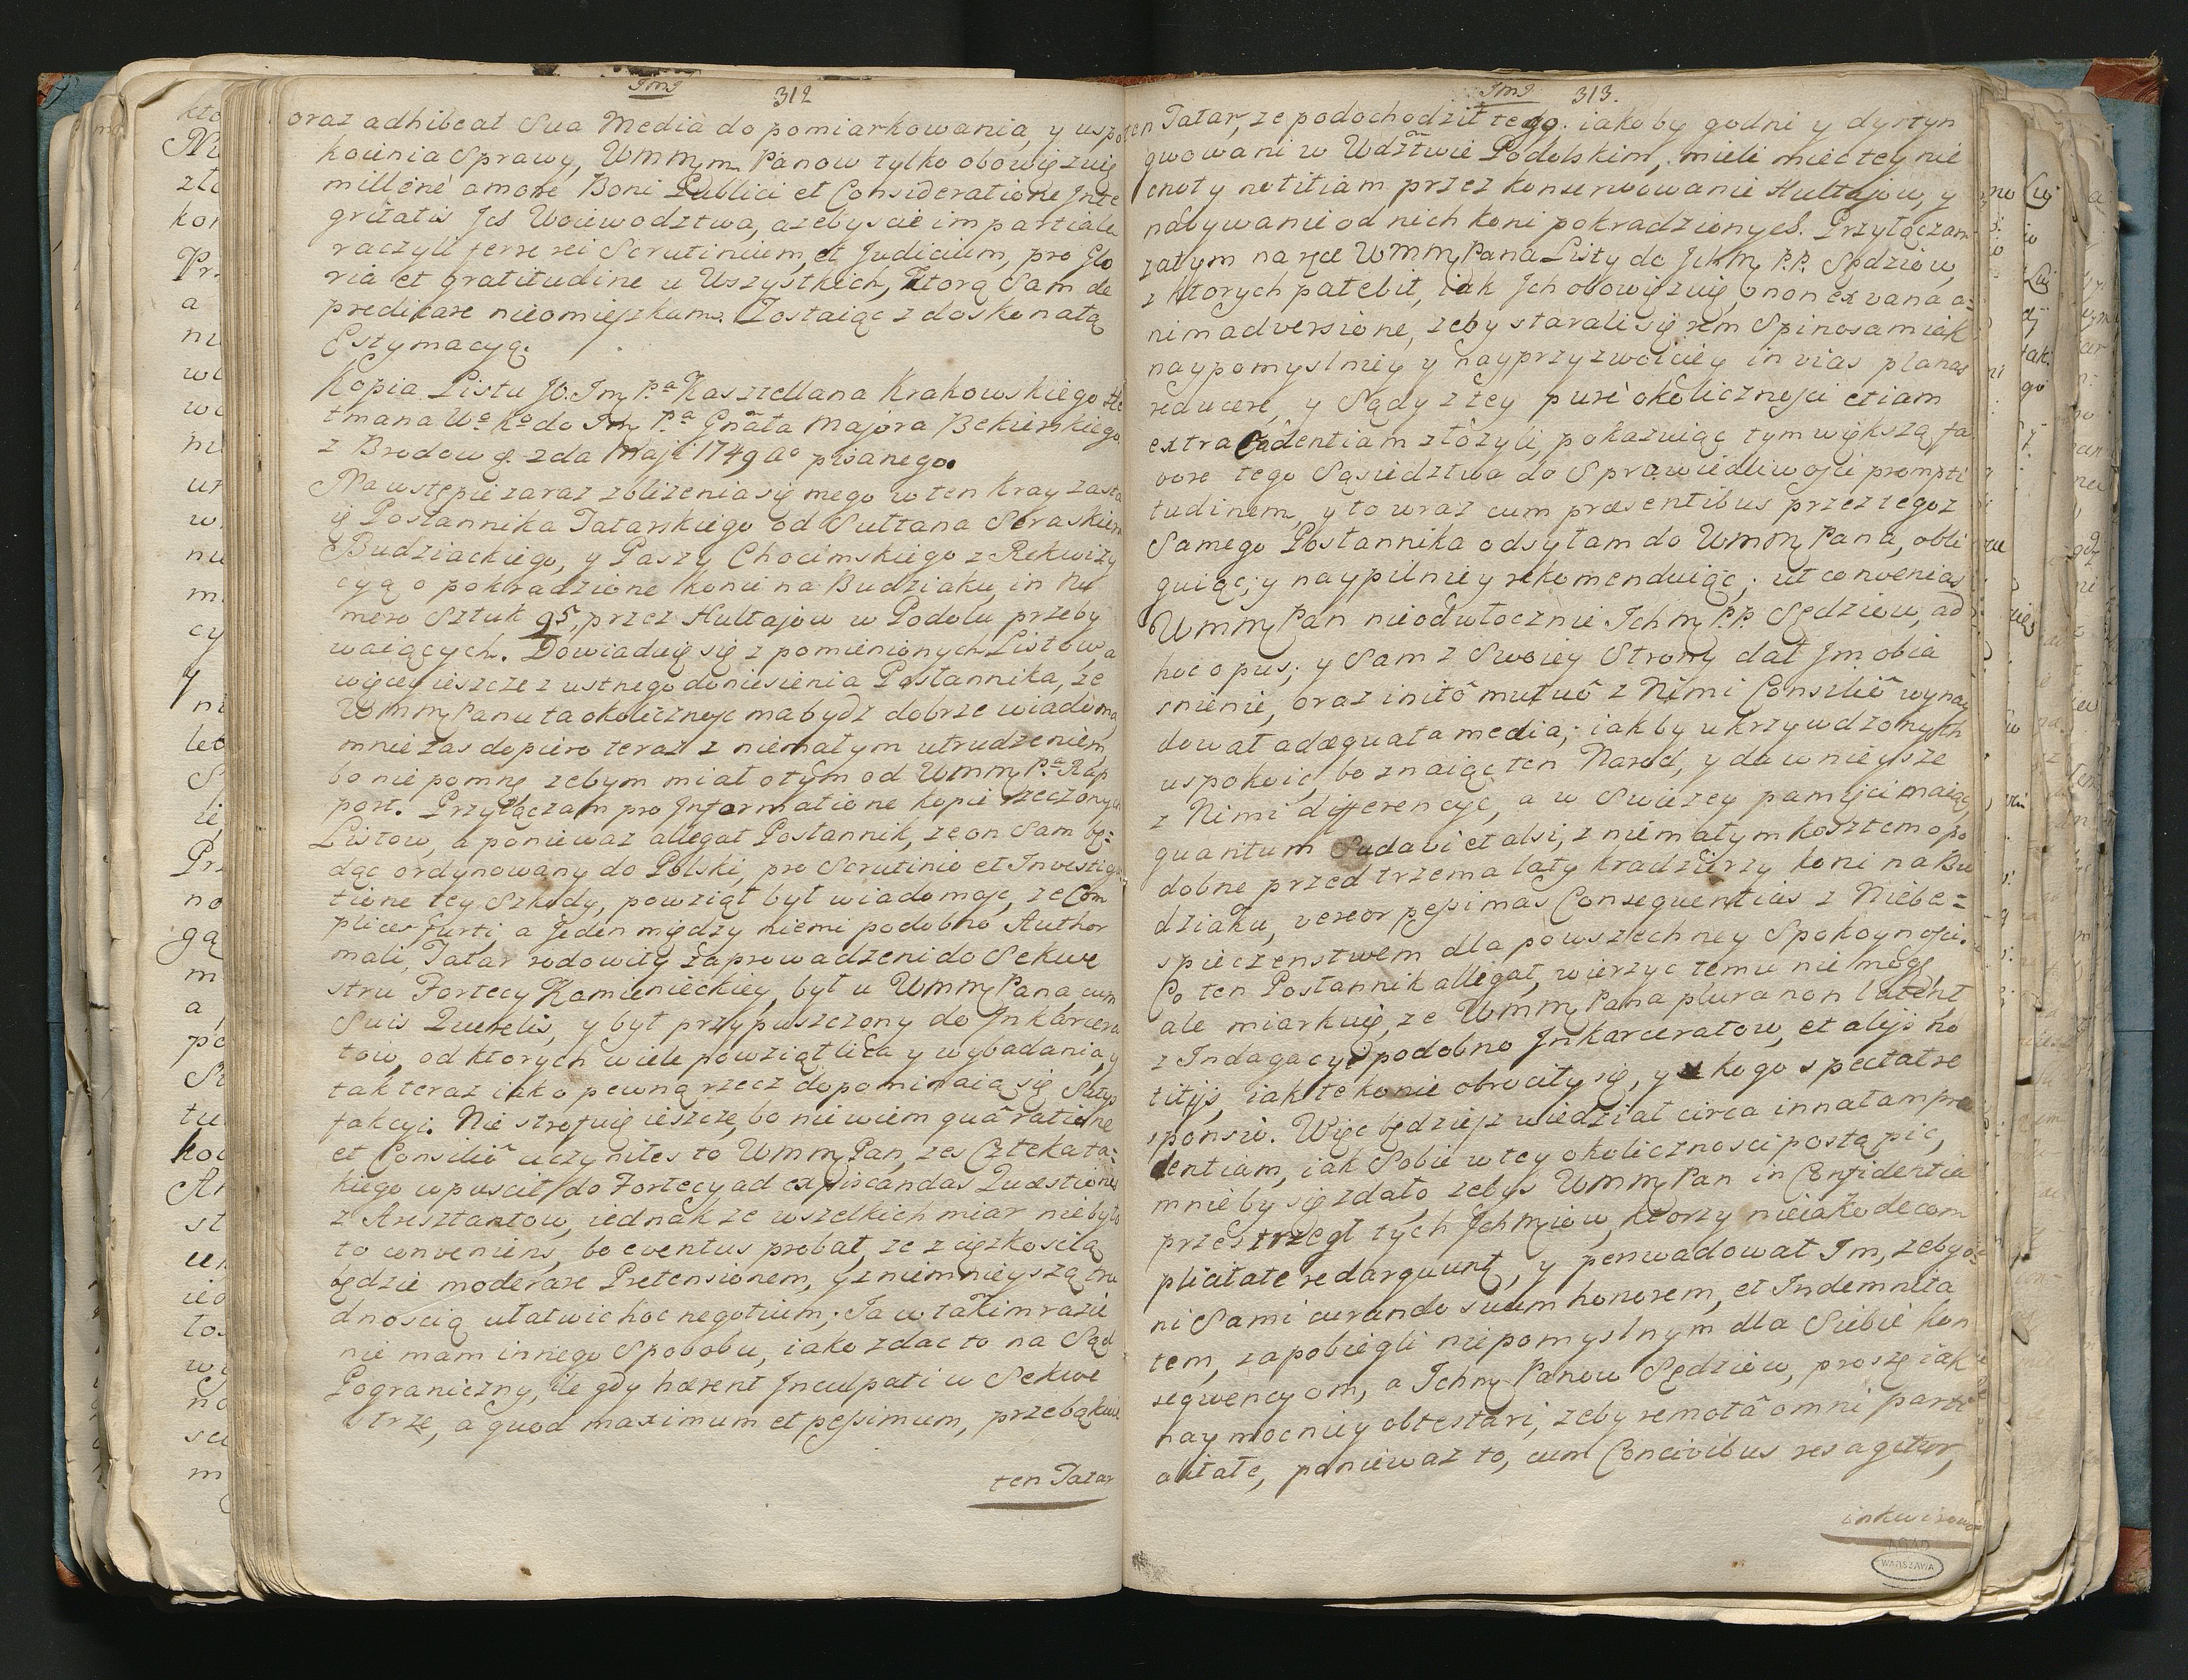 312
oraz adhibeat Sua Media do pomiarkowania, y uspo
koienia Sprawy, Ummym Panow tylko obowięzuię
millenè amore Boni Publici et Consideratione Inte
gritatis Ich Woiewodztwa, azebyscie impartiale
raczyli ferre rei Scrutinium, et Judicium, pro Glo
ria et gratitudine u Wszystkich, ktorą Sam de
predicare nieomieszkam. Zostaiąc z doskonałą
Estymacyą.
Kopia Listu JO. Jm Pa Kasztellana Krakowskiego He
tmana Wo Ko do Jm Pa Gnała Majora Bekierskiego
z Brodow g. 2da Maji 1749 ao pisanego.
Na wstępie zaraz zblizenia się mego w ten Kray zasta
ię Posłannika Tatarskiego od Sułtana Seraskiera
Budziackiego, y Paszy Chocimskiego z Rekwizy
cyą o pokradzione konie na Budziaku, in Nu
mero Sztuk 95, przez Hultajow w Podolu przeby
waiących. Dowiaduię się z pomienionych Listow, a
więcey ieszcze z ustnego doniesienia Posłannika, ze
Ummy Panu ta okolicznosc ma bydz dobrze wiadoma,
mnie zas dopiero teraz z niemałym utrudzeniem
bo nie pomnę zebym miał o tym od Ummy Pa Rap
port. Przyłączam pro Informatione kopie rzeczonych
Listow, a poniewaz allegat Posłannik, ze on Sam bę=
dąc ordynowany do Polski, pro Scrutinio et Investiga
tione tey Szkody, powziął był wiadomosc, ze Com
plices furti, a jeden między niemi podobno Author
mali, Tatar rodowity zaprowadzeni do Sekwe
stru Fortecy Kamienieckiey, był u Ummy Pana, cum
Suis Querelis, y był przypuszczony do Inkarcera
tow, od ktorych wiele powziął lica y wybadania, y
tak teraz iako pewną rzecz dopominaią się Satys
fakcyi. Nie strofuię ieszcze, bo nie wiem quâ ratione
et Consiliô uczyniłes to Ummy Pan, zes Człeka ta=
kiego wpuscił do Fortecy ad expiscandas Quæstiones
z Aresztantow, iednak ze wszelkich miar nie było
to conveniens, bo eventus probat, ze z cięzkoscią
będzie moderare Pretensionem, y z niemnieyszą tru
dnoscią ułatwic hoc negotium. Ja w takim razie
nie mam innego Sposobu, iako zdac to na Sąd
Pograniczny, ile gdy hærent Inculpati w Sekwe
strze, a quod maximum et pessimum, przebąkuie
ten Tatar
313.
ten Tatar, ze podochodził tego. iakoby godni y dystyn
gwowani w Wdztwie Podolskim, mieli miec tey nie
cnoty notitiam przez konserwowanie Hultajow, y
nabywanie od nich koni pokradzionych. Przyłączam
zatym na ręce Ummy Pana Listy do Ichm P.P. Sędziow,
z ktorych patebit, iak Ich obowięzuię, non ex vana a=
nimadversione, zeby starali się rem Spinosam iak
naypomyslniey y nayprzyzwoiciey in vias planas
reducere, y Sądy z tey purè okolicznosci etiam
extra Cadentiam złozyli, pokazuiąc tym większą fa
vore tego Sąsiedztwa do Sprawiedliwosci prompti
tudinem, y to wraz cum præsentibus przez tegoz
Samego Posłannika odsyłam do Ummy Pana, obli
guiąc; y naypilniey rekomenduiąc; ut convenias
Ummy Pan nieodwłocznie Ichm P.P. Sędziow, ad
hoc opus; y Sam z Swoiey Strony dał Jm obia
snienie, oraz initô mutuô z Nimi Consiliô wynay
dował adæquata media; iakby ukrzywdzonych
uspokoic, bo znaiąc ten Narod, y dawnieysze
z Nimi differencye, a w Swiezey pamięci maiąc,
quantum Sudavi et alsi, z niemałym kosztem o po
dobne przed trzema laty kradzierzy koni na Bu
dziaku, vereor pessimas Consequentias z Niebe=
spieczenstwem dla powszechney Spokoynosci.
Co ten Posłannik allegat, wierzyc temu nie mogę,
ale miarkuię, ze Ummy Pana plura non latent,
z Indagacyi podobno Inkarceratow, et alijs no
titijs, iak te konie obrociły się, y kogo spectat re
sponsio. Więc będziesz wiedział circa innatam pru
dentiam, iak Sobie w tey okolicznosci postąpic,
mnie by się zdało, zebys Ummy Pan in Confidentia
przestrzegł tych Ichmciow, ktorzy nieiako de com
plicitate redarguunt, y perswadował Im, zeby o=
ni Sami curando suum honorem, et Indemnita
tem, zapobiegli niepomyslnym dla Siebie kon
seqwencyom, a Ichm Panow Sędziow, proszę iak
naymocniey obtestari, zeby remotâ omni parti
alitate, poniewaz to, cum Concivibus res agitur,
inkwirowa
WARSZAWA